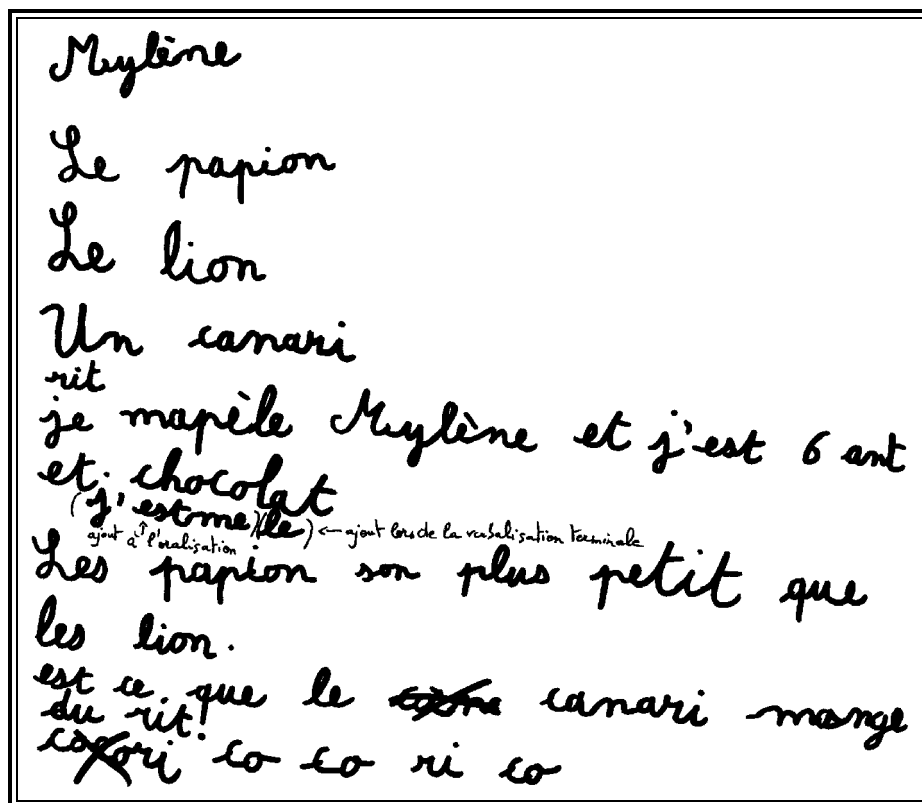 Mylène
Le papion
Le lion
Un canari
rit
je mapèle Mylène et j'est 6 ant
et. chocolat
(j'estme)(le) ← ajout lors de la verbalisation terminale
ajout à l'oralisation
Les papion son plus petit que
les lion.
est ce que le canari mange
du rit!
cocori co co ri co